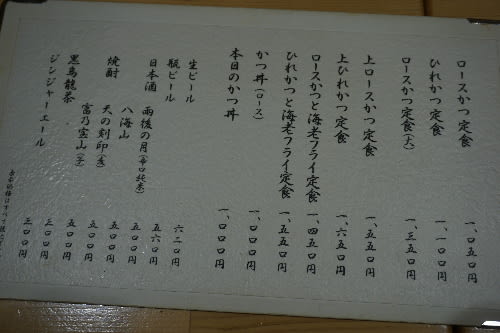 ロースかつ定食 一、〇五〇円
ひれかつ定食 一、一〇〇円
ロースかつ定食(大) 一、三五〇円
上ロースかつ定食 一、五五〇円
上ひれかつ定食 一、六五〇円
ロースかつと海老フライ定食 一、四五〇円
ひれかつと海老フライ定食 一、五五〇円
かつ丼(ロース) 一、〇〇〇円
本日のかつ丼 一、〇〇〇円
生ビール 六二〇円
瓶ビール 五六〇円
日本酒 雨後の月(辛口純米) 五〇〇円
八海山 五〇〇円
焼酎 天の刻印(麦) 五〇〇円
富乃宝山(芋) 五〇〇円
黒烏龍茶 三〇〇円
ジンジャーエール 三〇〇円